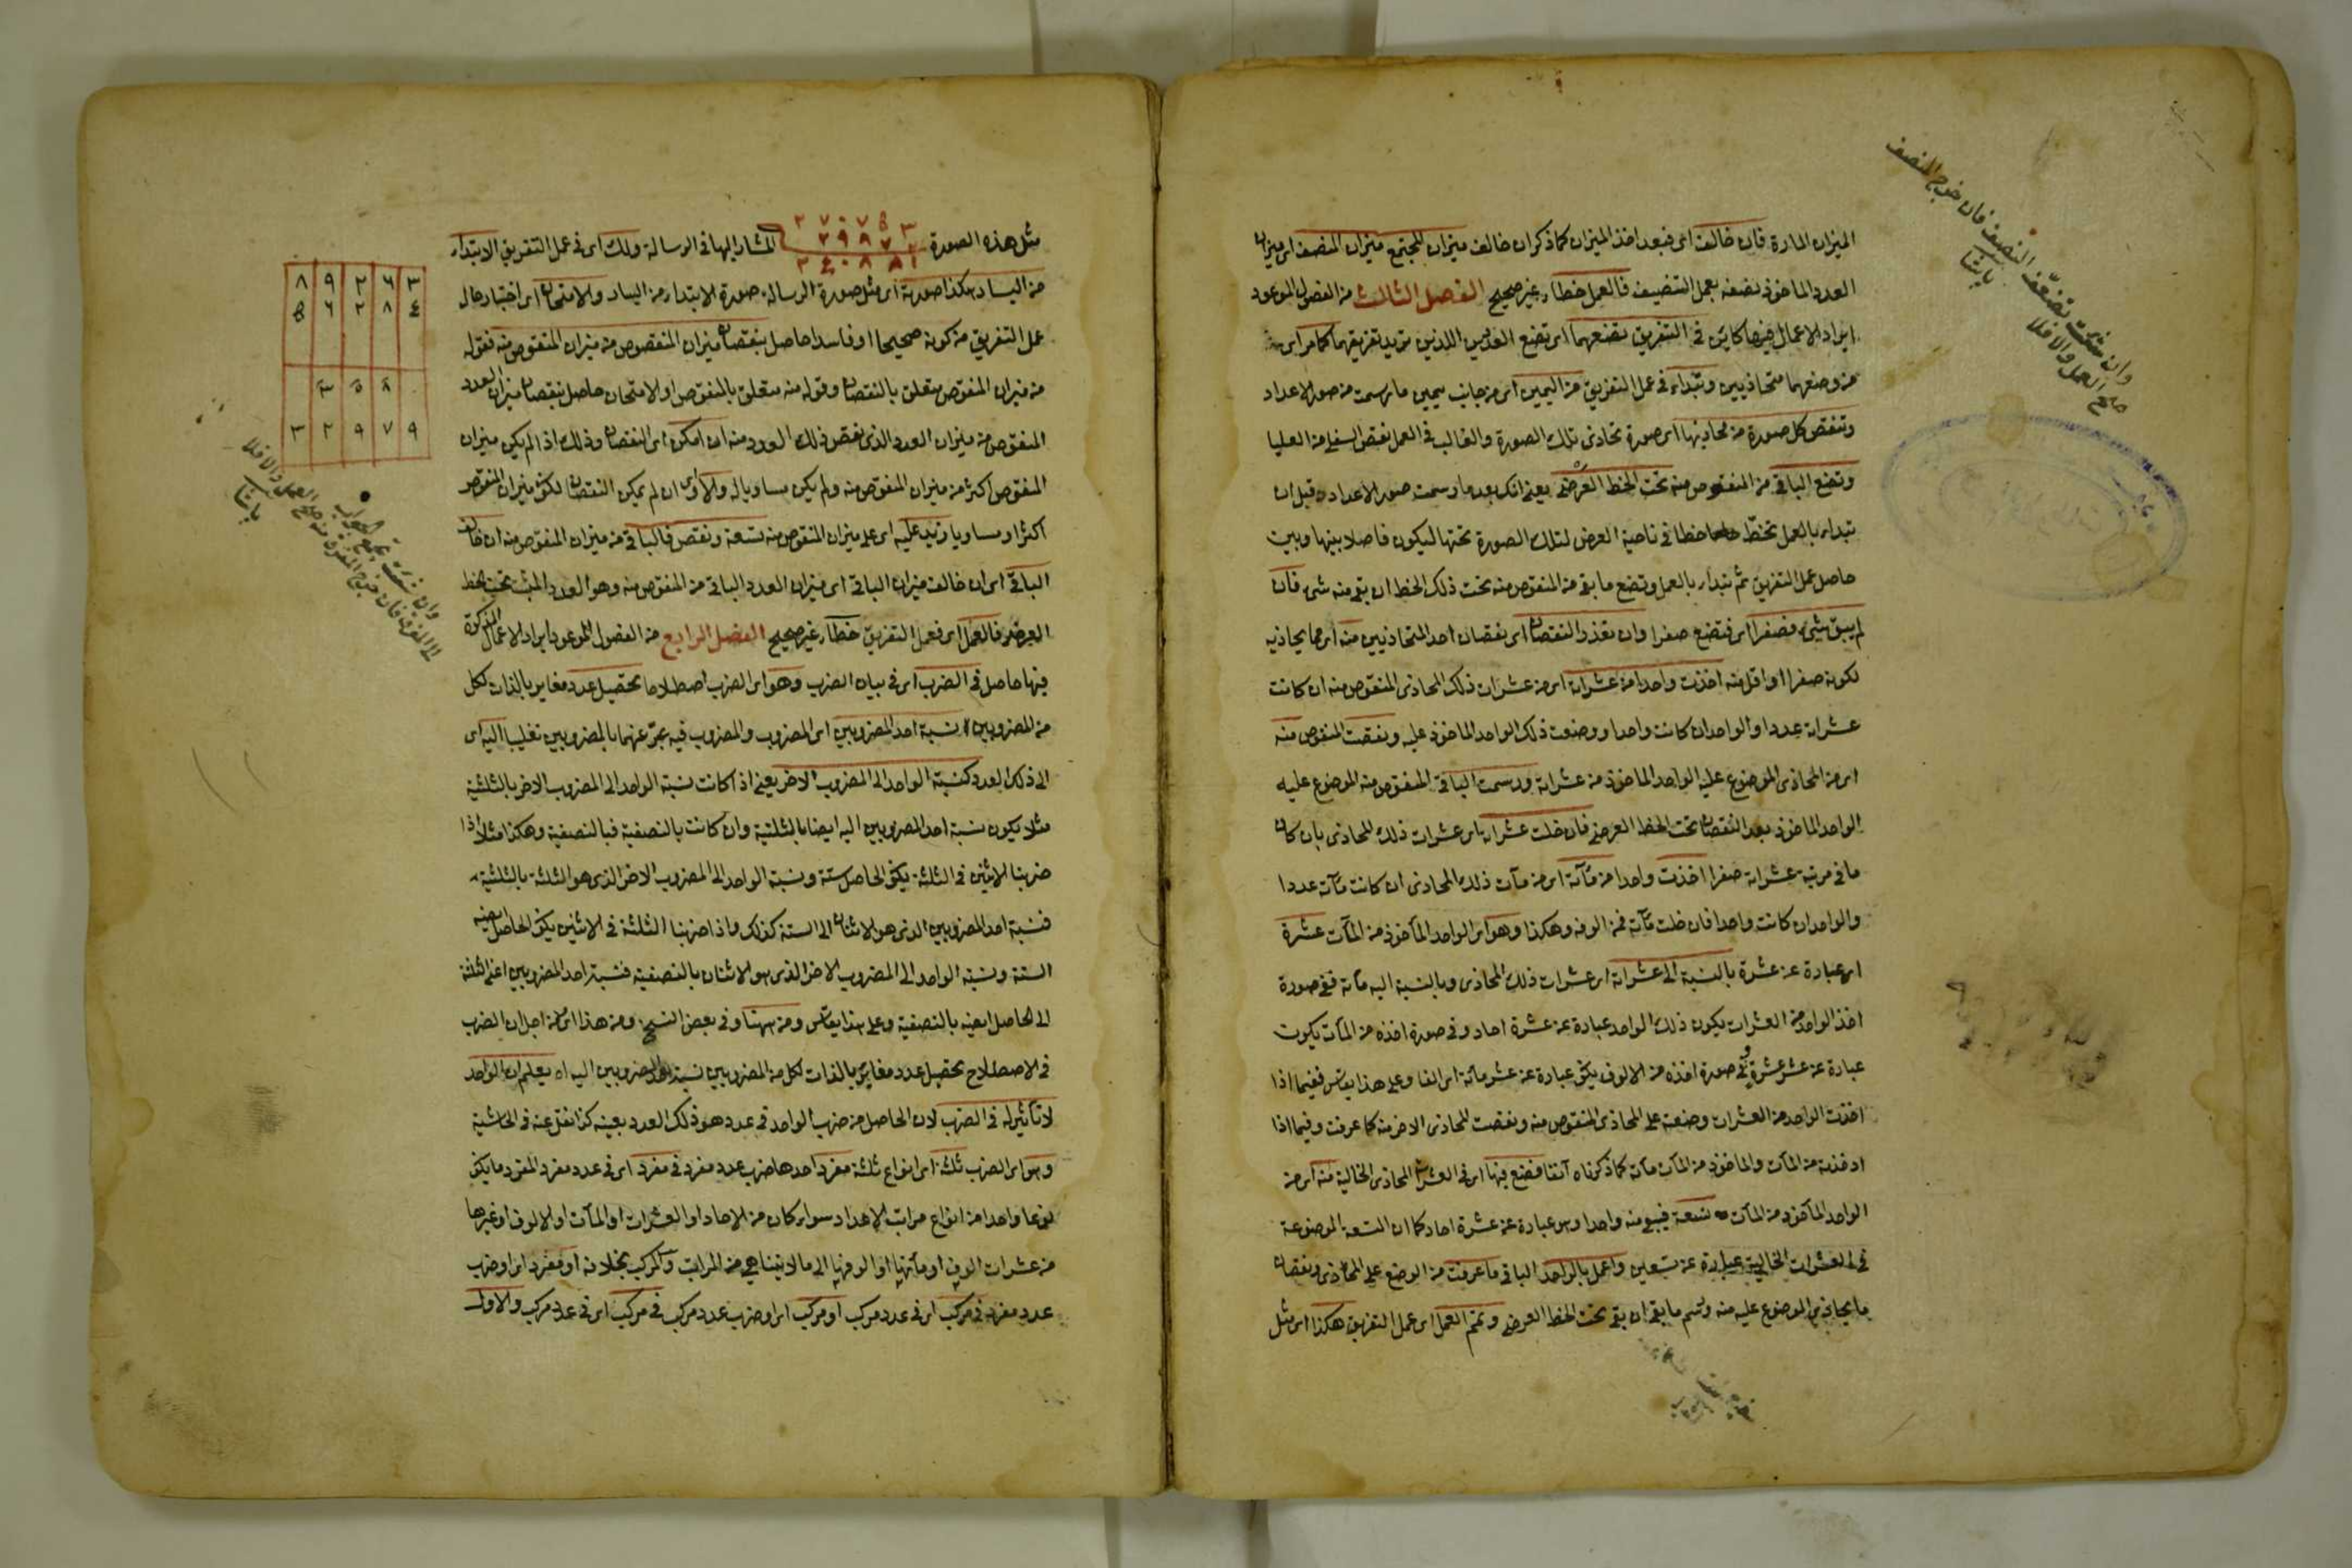 الميزان المارة فان خالفت اى فبعد اخذ الميزان كما ذكر ان خالف ميزان المجتمع ميزان المنصف اى ميزان
العدد الماخوذ نصفه بعمل التنصيف فالعمل خطاء غير صحيح الفصل الثالث من الفصول الموعود
ايراد الاعمال فيها كاين فى التفريق تضعهما اى تضع العددين اللذين تريد تفريقهما كما مر اى
من وضعهما متحاذيين وتبداء فى عمل التفريق من اليمين اى من جانب يمين ما رسمت من صور الاعداد
وتنقص كل صورة من محاذيها اى صورة تحاذى تلك الصورة والغالب فى العمل نقص السفلى من العليا
وتضع الباقى من المنقوص منه تحت الخط العرضى يعنى انك بعد ما رسمت صور الاعداد قبل ان
تبداء بالعمل تخط خطا فى ناحية العرض لتلك الصورة تحتها ليكون فاصلا بينها وبين
حاصل عمل التفريق ثم تبداء بالعمل وتضع ما بقى من المنقوص منه تحت ذلك الخط ان بقى منه شىء فان
لم يبق شىء فصفرا اى فتضع صفرا وان تعذر النقصان اى نقصان احد المتحاذيين منه اى مما يحاذيه
لكونه صفرا او اقل منه اخذت واحدا من عشراته اى من عشرات ذلك المحاذى المنقوص منه ان كانت
عشراته عددا والواحد ان كانت واحدا ووضعت ذلك الواحد الماخوذ عليه ونقصت المنقوص منه
اى من المحاذى الموضوع عليه الواحد الماخوذ من عشراته ورسمت الباقى المنقوص منه الموضوع عليه
الواحد الماخوذ بعد النقصان تحت الخط العرضى فان خلت عشراته اى عشرات ذلك المحاذى بان كان
ما فى مرتبة عشراته صفرا اخذت واحدا من مآته اى من مآت ذلك المحاذى ان كانت مآته عددا
والواحد ان كانت واحدا فان خلت مآته فمن الوفه وهكذا وهو اى الواحد المأخوذ من المآت عشرة
اى عبارة عن عشرة بالنسبة الى عشراته اى عشرات ذلك المحاذى وبالنسبة اليه مآة ففى صورة
اخذ الواحد من العشرات يكون ذلك الواحد عبارة عن عشرة احاد وفى صورة اخذه من المآت يكون
عبارة عن عشر عشرة وفى صورة اخذه من الالوف يكون عبارة عن عشر مآته اى الفا وعلى هذا يقاس ففيما اذا
اخذت الواحد من العشرات وضعته على المحاذى المنقوص منه ونقصت المحاذى الاخر منه كما عرفت وفيما اذا
اخذته من المآت والماخوذ من المآت مآة كما ذكرناه آنفا فضع فيها اى فى العشرات المحاذى الخالية منه اى من
الواحد المأخوذ من المآت تسعة فيبقى منه واحدا وهو عبارة عن عشرة احاد كما ان التسعة الموضوعة
فى العشرات الخالية عبارة عن تسعين واعمل بالواحد الباقى ما عرفت من الوضع على المحاذى ونقصان
ما يحاذى الموضوع عليه منه ورسم ما بقى ان بقى تحت الخط العرضى وتمم العمل اى عمل التفريق هكذا اى مثل
وان شئت تضعّف النصف فان خرج المنصف
صح العمل والا فلا
پاشا
مثل هذه الصورة المشار اليها فى الرسالة ولك اى فى عمل التفريق الابتداء
٢٧٠٧٥٣
٢٩٨٧٢
٢٤٠٨٨١
من اليسار هكذا صورته اى مثل صورة الرسالة صورة الابتداء من اليسار والامتحان اى اختبار حال
عمل التفريق من كونه صحيحا او فاسدا حاصل بنقصان ميزان المنقوص من ميزان المنقوص منه فقوله
من ميزان المنقوص متعلق بالنقصان وقوله منه متعلق بالمنقوص او الامتحان حاصل بنقصان ميزان العدد
المنقوص من ميزان العدد الذى نقص ذلك العدد منه ان امكن اى النقصان وذلك اذا لم يكن ميزان
المنقوص اكثر من ميزان المنقوص منه ولم يكن مساويا له والا اى ان لم يمكن النقصان لكون ميزان المنقوص
اكثر او مساويا زيد عليه اى على ميزان المنقوص منه تسعة ونقص فالباقى من ميزان المنقوص منه ان خالف
الباقى اى ان خالف ميزان الباقى اى ميزان العدد الباقى من المنقوص منه وهو العدد المثبت تحت الخط
العرضى فالعمل اى فعمل التفريق خطاء غير صحيح الفصل الرابع من الفصول الموعود ايراد الاعمال المذكورة
فيها حاصل فى الضرب اى فى بيان الضرب وهو اى الضرب اصطلاحا تحصيل عدد مغاير بالذات لكل
من المضروبين نسبة احد المضروبين اى المضروب والمضروب فيه عبّر عنهما بالمضروبين تغليبا اليه اى
الى ذلك العدد كنسبة الواحد الى المضروب الاخر يعنى اذا كانت نسبة الواحد الى المضروب الاخر بالثلثية
مثلا يكون نسبة احد المضروبين اليه ايضا بالثلثية وان كانت بالنصفية فبالنصفية وهكذا مثلا اذا
ضربنا الاثنين فى الثلثة يكون الحاصل ستة ونسبة الواحد الى المضروب الاخر الذى هو الثلثة بالثلثية
فنسبة احد المضروبين الذى هو الاثنان الى الستة كذلك واذا ضربنا الثلثة فى الاثنين يكون الحاصل ايضا
الستة ونسبة الواحد الى المضروب الاخر الذى هو الاثنان بالنصفية فنسبة احد المضروبين اعنى الثلثة
الى الحاصل ايضا بالنصفية وعلى هذا يقاس ومن ههنا وفى بعض النسخ ومن هذا اى من اجل ان الضرب
فى الاصطلاح تحصيل عدد مغاير بالذات لكل من المضروبين نسبة احد المضروبين اليه اه يعلم ان الواحد
لا تأثير له فى الضرب لان الحاصل من ضرب الواحد فى عدد هو ذلك العدد بعينه كذا نقل عنه فى الحاشية
وهو اى الضرب ثلثة اى انواع ثلثة مفرد احدها ضرب عدد مفرد فى مفرد اى فى عدد مفرد المفرد ما يكون
نوعا واحدا من انواع مراتب الاعداد سواء كان من الاحاد او العشرات او المآت او الالوف او غيرها
من عشرات الوف او مآتها او الوفها الى ما لا يتناهى من المراتب والمركب بخلافه او مفرد اى او ضرب
عدد مفرد فى مركب اى فى عدد مركب او مركب اى او ضرب عدد مركب فى مركب اى فى عدد مركب والاول
٨ ٩ ٢ ٦ ٣
٥ ٦ ٢ ٨ ٤
٣ ٢ ٩ ٧ ٩
وان شئت تجمع
صح العمل والا فلا
پاشا